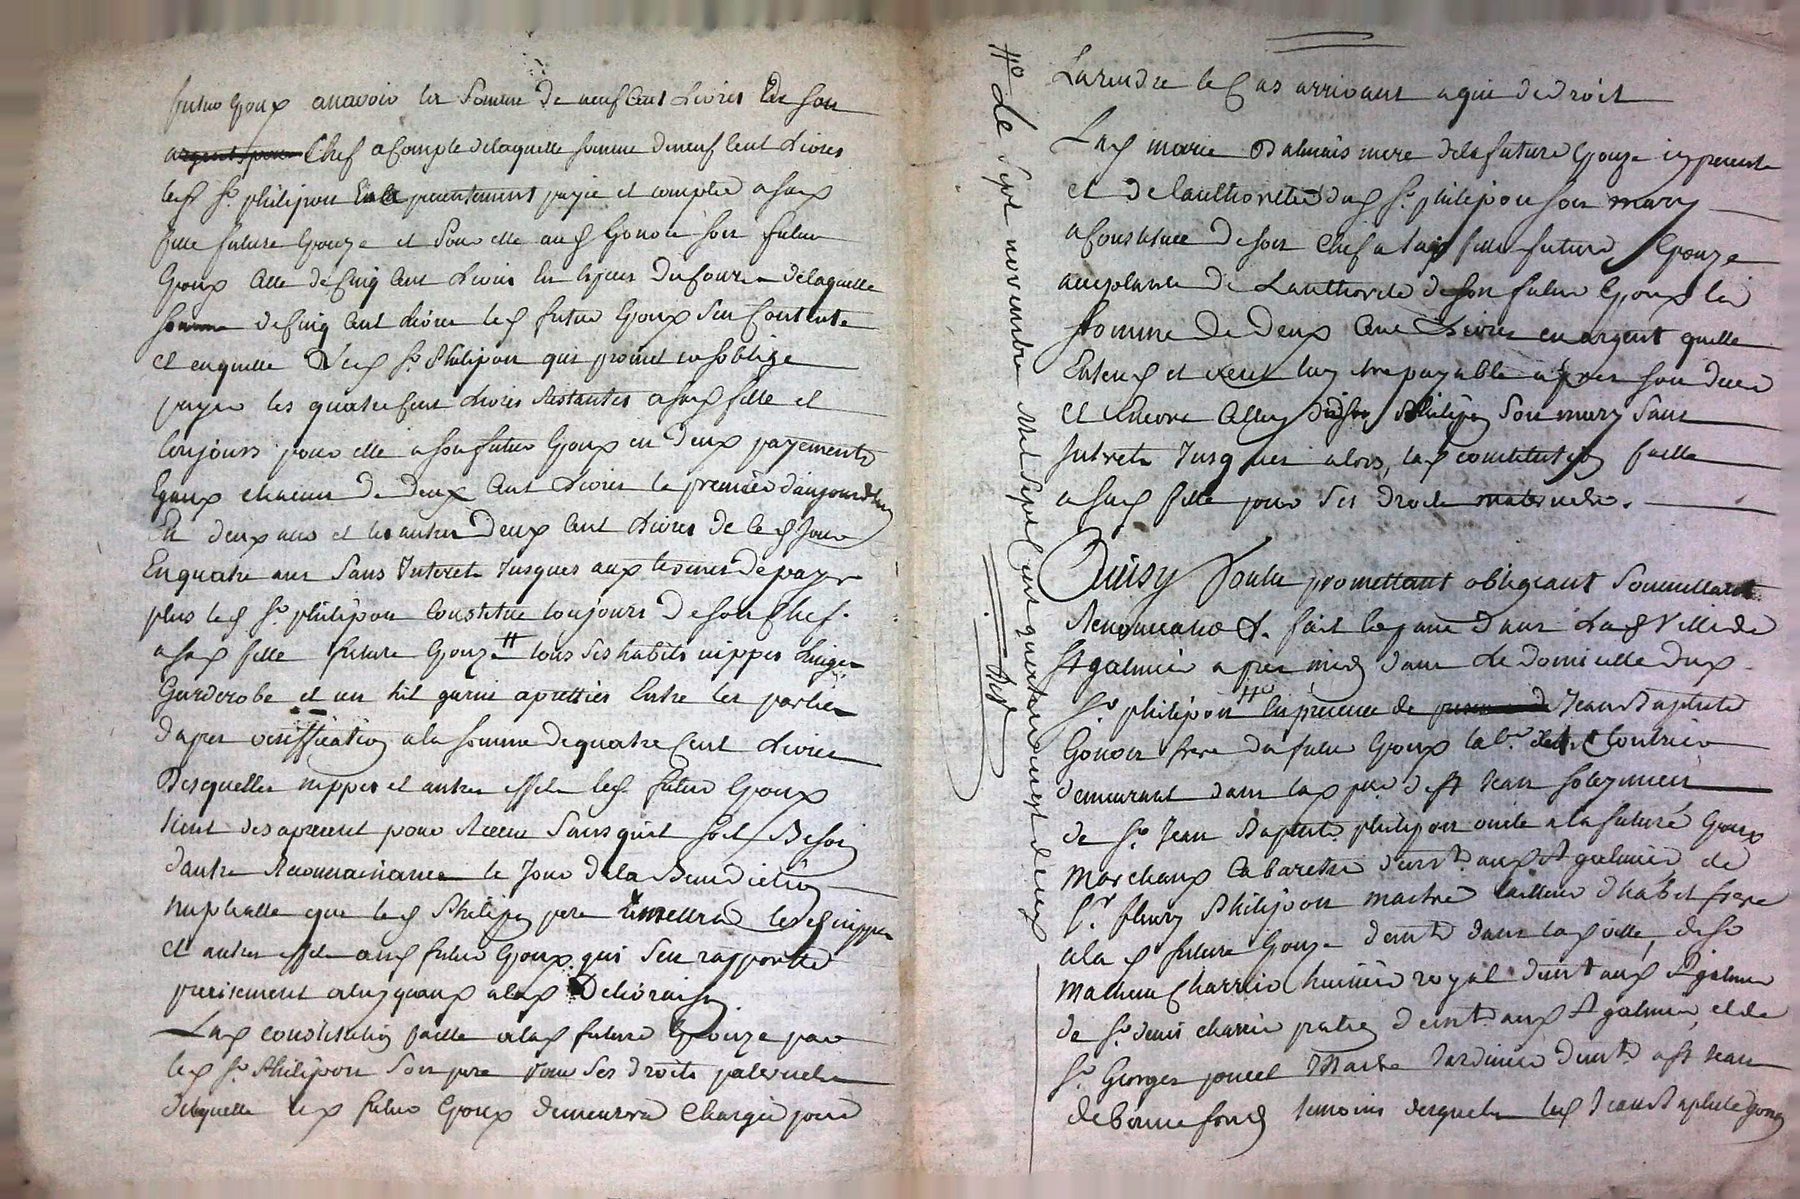 futur Epoux a savoir la Somme de neuf Cent Livres En son
Chef a Compte delaquelle somme deneuf Cent Livres
led Sr. philipon En a presentement payé et compté a sad
fille future Epouze et pour elle aud Gonon son futur
Epoux Celle de Cinq Cent Livres delaquelle
somme de Cinq Cent Livres led futur Epoux Sen Contente
et enquitte Led Sr. Philipon qui promet et soblige
payer les quatre Cent Livres Restantes a sad fille et
toujours pour elle a son futur Epoux en deux payements
Egaux chacun de deux Cent Livres le premier daujourdhuy
En deux ans et les autres deux Cent Livres de Ced Jour
En quatre ans Sans Interets Jusques aux termes de payer
plus led Sr. philipon Constitue toujours de son Chef
a sad fille future Epouze tous ses habits nippes Linges
Garderobe et un lit garni Entre les parties
dapres veriffication a la somme de quatre Cent Livres
Desquelles nippes et autres effets led futur Epoux
tient des apresent pour Receu Sans quil soit Besoin
dautre Reconnaissance le Jour de la Benediction
nuptialle que led Philipon pere remettra lesd nippes
et autres effets aud futur Epoux qui Sen rapporte
a lad Delivraison
Lad constitution faitte a lad future Epouze par
led Sr. Philipon Son pere pour Ses droits paternels
delaquelle led futur Epoux demeurera Chargé pour
La rendre le Cas arrivant a qui de droit
Lad marie Dalmais mere dela future Epouze icy presente
et de lauthorité dud Sr. philipon son mary
a Constitué de son Chef a lad fille future Epouze
acceptante de Lauthorité de son futur Epoux la
Somme de deux Cent Livres en argent quelle
Entend et veut luy etre payable apres son deces
et Encore Celluy dud Philipon Son mary Sans
Interets Jusques alors, lad constitution faitte
a sad fille pour Ses droits maternels.
Ainsy Voulu promettant obligeant Soumettant
Renonceant &. fait & passé dans Lad Ville de
St galmier apres midy dans Le domicille dud
Sr. philipon En presence de Jean Baptiste
Gonon frere du futur Epoux
demeurant dans lad pse de St Jean Soleymieu
de Sr. Jean Baptiste philipon oncle a la future Epouze
Marchand Cabaretier demt. aud St galmier de
Sr. fleury Philipon maitre tailleur dhabit frere
a lad future Epouze demt. dans lad ville, de Sr.
Mathieu Charrin huissier royal demt. aud St galmier
de Sr. denis charrin demt. aud St galmier, et de
Sr. Georges poncet Maitre Jardinier demt. a St Jean
de bonnefond temoins desquels led Jean Baptiste Gonon
#o Le Sept novembre Mil Sept Cent quatrevingt deux